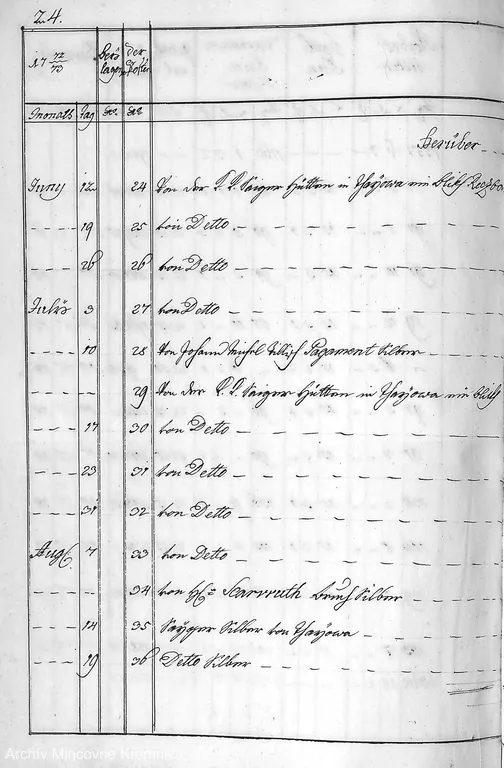 24.
17 72/73 Beÿ lagen der Posten
Monath Tag No. No.
Herüber
Juny 12 24 Von der K. K. Saiger Hütten in Thajowa ein Blick
19 25 von Detto
26 26 von Detto
Julÿ 3 27 von Detto
10 28 Von Johann Michel Pagament Silber
29 Von der K. K. Saiger Hütten in Thajowa ein Blick
17 30 von Detto
23 31 von Detto
31 32 von Detto
Aug. 7 33 von Detto
34 von H: Bruch Silber
14 35 Sayger Silber von Thajowa
19 36 Detto Silber
Archív Mincovne Kremnica